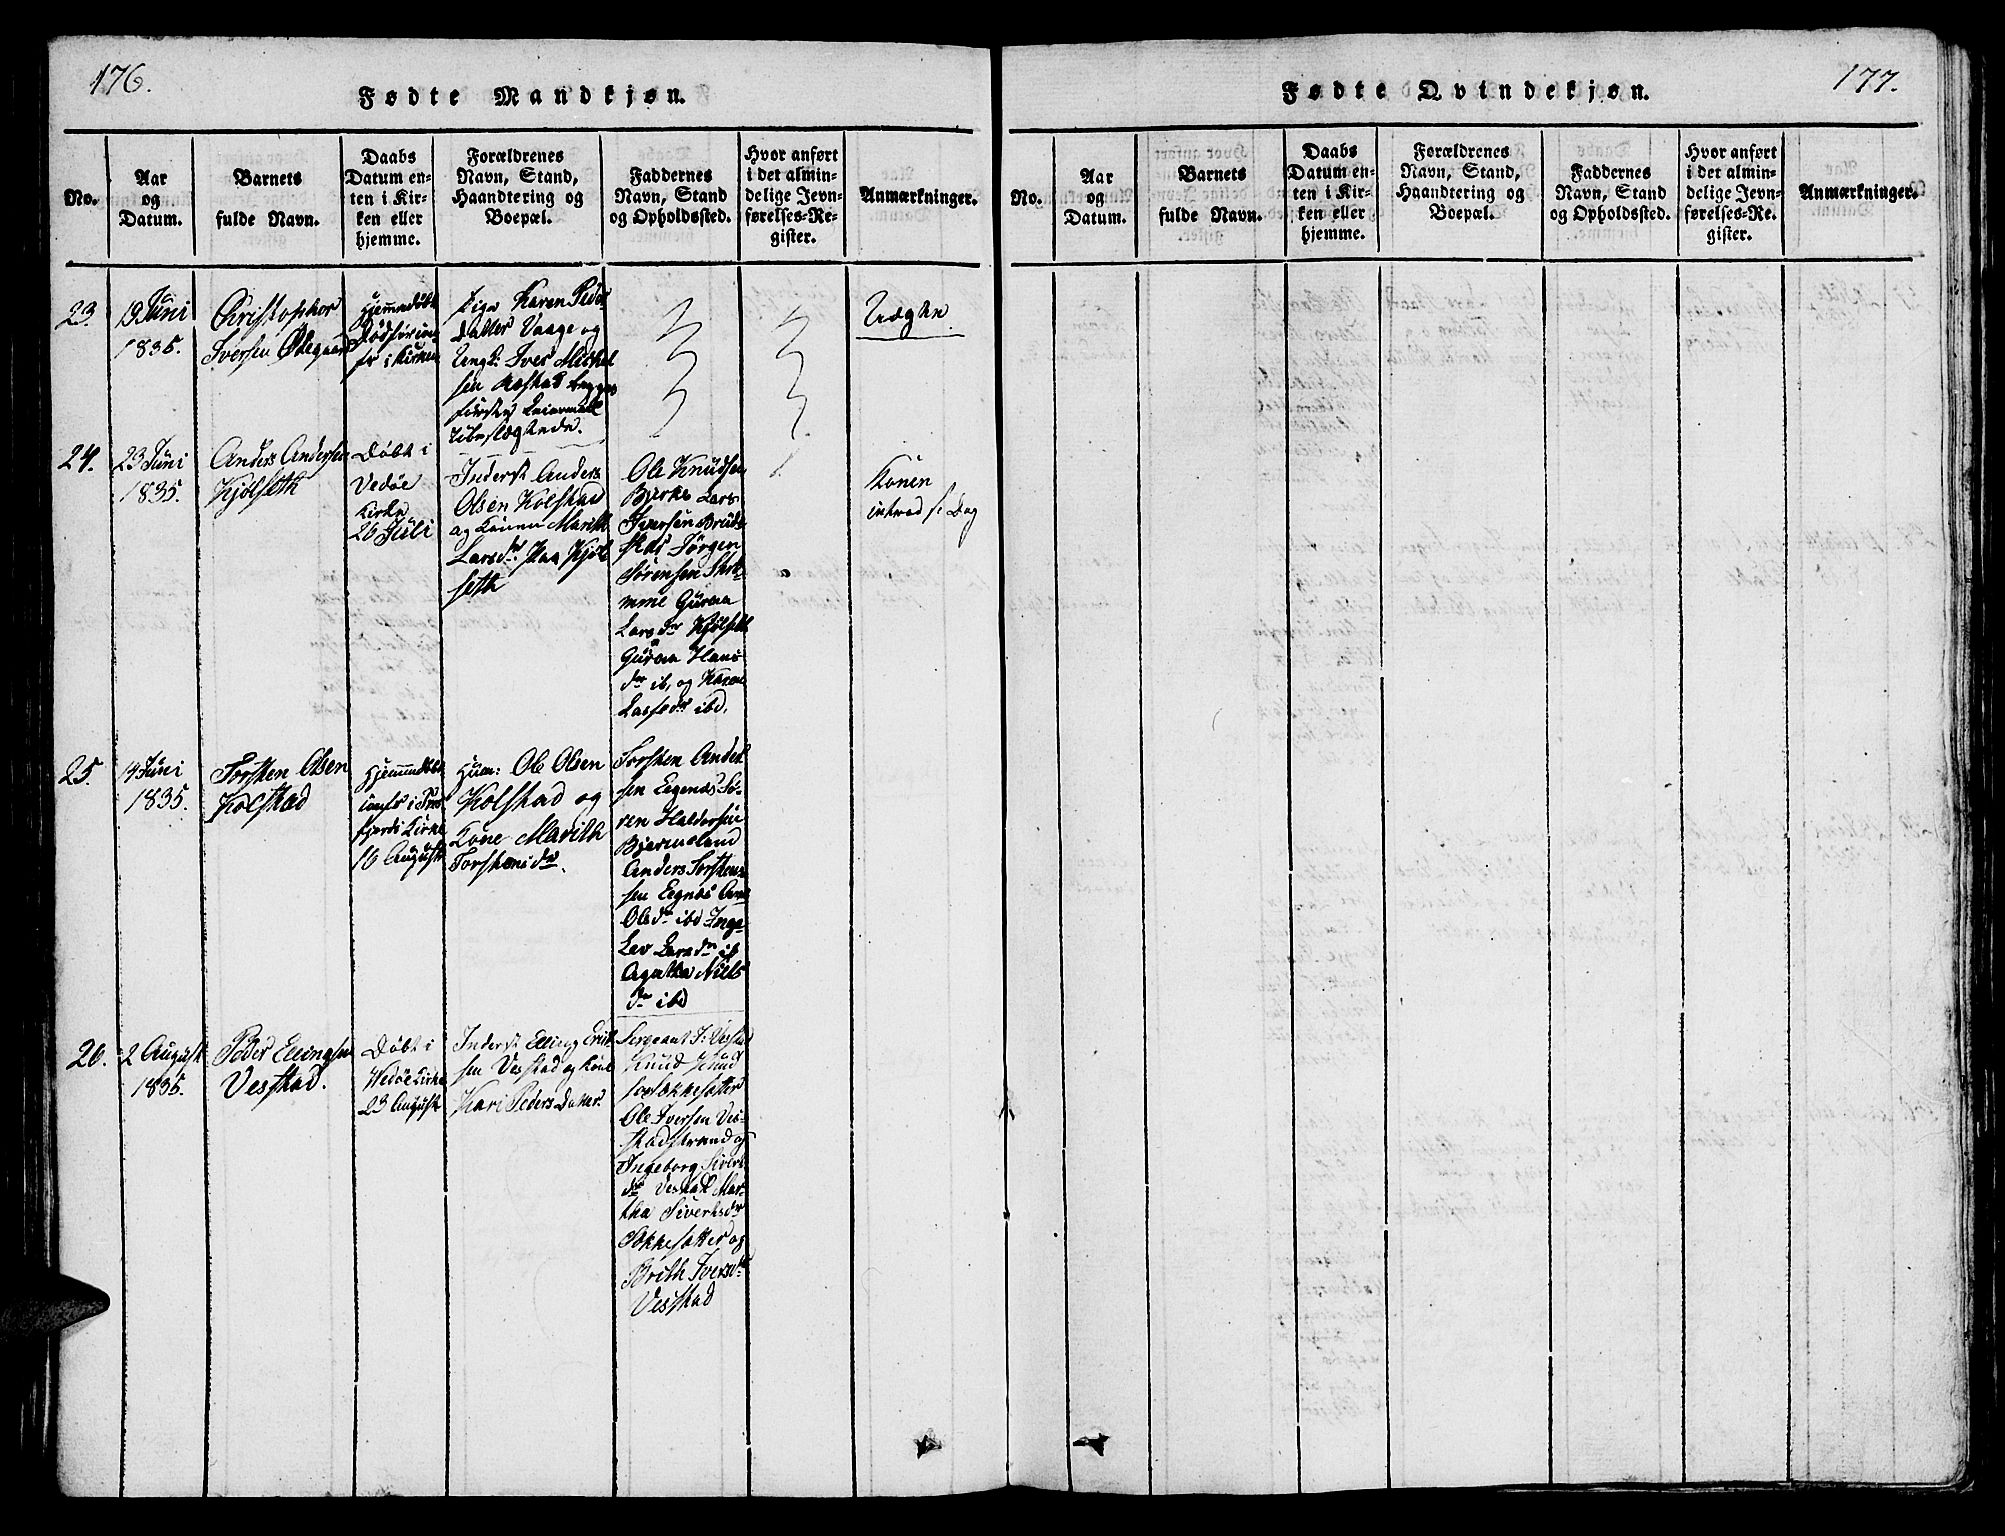 176.
Fødte Mandkjøn.
No.
Aar
og
Datum.
Barnets
fulde Navn.
Daabs
Datum en-
ten i Kir-
ken eller
hjemme.
Forældrenes
Navn, Stand,
Haandtering og
Boepæl.
Faddernes
Navn, Stand
og Opholdssted.
Hvor anført
i det almin-
delige Jevn-
førelses-Re-
gister.
Anmærkninger.
23.
19 Juni
1835.
Christopher
Iversen Ødegaard
Hjemmedøbt
i Kirken
Pige Karen Peders
Datter Vaage og
Ungk: Iver Mickel
sen
Leiermaal
Uægte
24.
23 Juni
1835.
Anders Andersen
Kjølseth
Døbt i
Vedøe
Kirke
26 Juli
Inderst Anders
Olsen Kolstad
og Konen Marith
Larsdr: Kjøl
seth
Ole Knudsen
Bjerke Lars
Iversen
Jørgen
Sørensen
Guroe
Larsdr Kjølseth
Guroe Hans
dr ib, og Karen
Lassedr ibd.
Konen
introd f: Dag
25.
14 Juni
1835.
Torsten Olsen
Kolstad
Hjemmedøbt
fjords Kirke
16 August
Huus: Ole Olsen
Kolstad og
Kone Marith
Torstensdr.
Torsten Ander
sen Eegenæs Sø-
ren Haldorsen
Bjermeland
Anders Torstens
sen Eegnæs
Olsdr ibd Inge-
Larsdr ib
Agatha Niels
dr ibd
26.
2 August
1835.
Peder Ellingsen
Vestad.
Døbt i
Wedøe Kirke
23 August
Inderst Elling Erik
sen Vestad og Kone
Kari Peders Datter
Sergeant J: Vestad
Knud Knud
sen Sækkesætter
Ole Iversen Ves-
stadstrand og
Ingeborg Siverts
dr Vestad Mar-
tha Sivertsdr
Sækkesætter og
Brith Iversdr
Vestad
177.
Fødte Qvindekjøn.
No.
Aar
og
Datum.
Barnets
fulde Navn.
Daabs
Datum en-
ten i Kir-
ken eller
hjemme.
Forældrenes
Navn, Stand,
Haandtering og
Boepæl.
Faddernes
Navn, Stand
og Opholdssted.
Hvor anført
i det almin-
delige Jevn-
førelses-Re-
gister.
Anmærkninger.